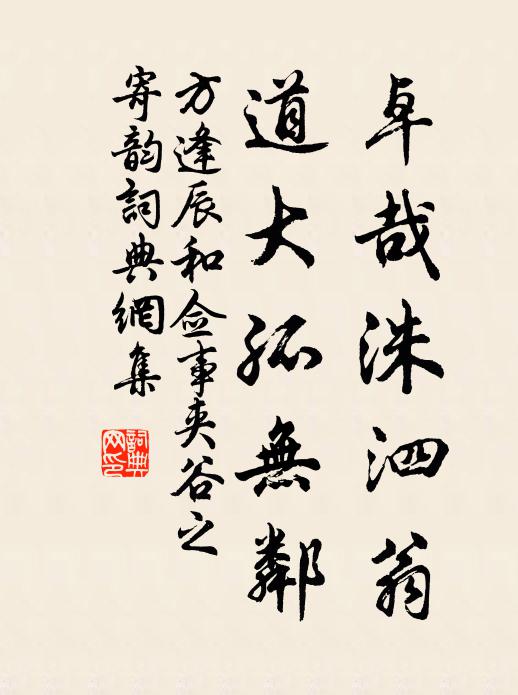 卓哉洙泗翁
道大孤無鄰
方逢辰和僉事夾谷之
寄韵詞典網集
詞典網印